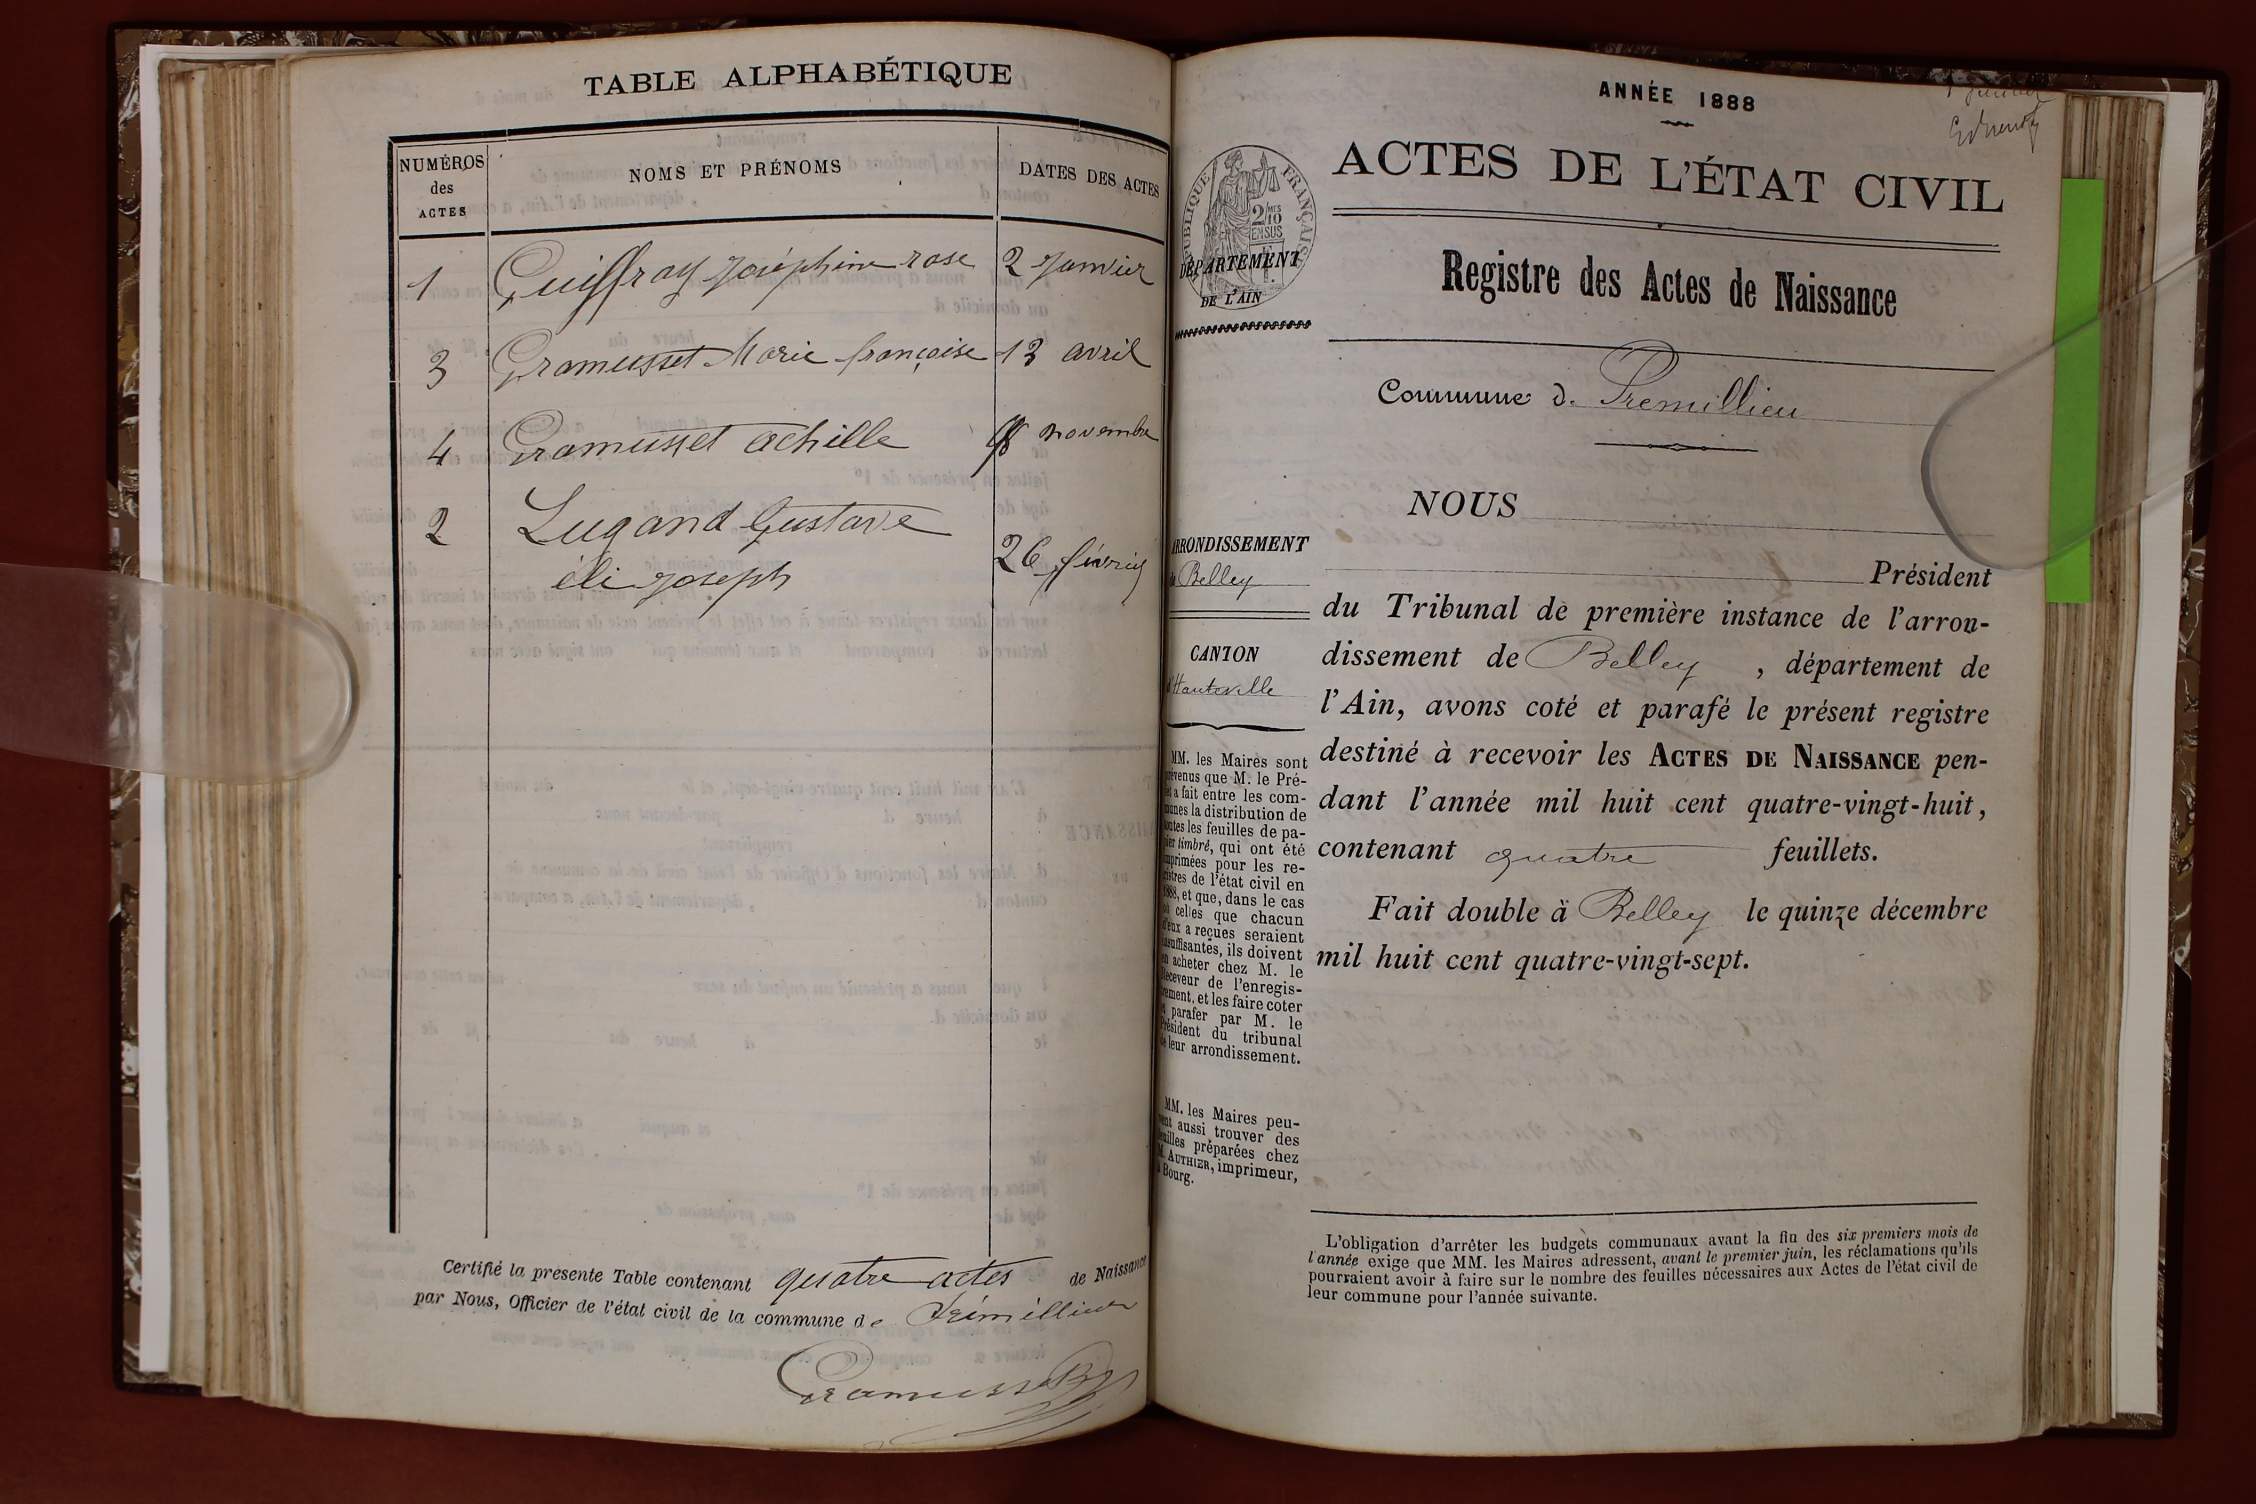 TABLE ALPHABÉTIQUE
NUMÉROS
des
ACTES
NOMS ET PRÉNOMS
DATES DES ACTES
1 Guiffray Joséphine rose 2 Janvier
3 Gramusset Marie françoise 13 avril
4 Gramusset achille novembre
2 Lugand Gustave
éli joseph 26 février
Certifié la présente Table contenant quatre actes de Naissance
par Nous, Officier de l'état civil de la commune de Prémillieu
Gramusset
ANNÉE 1888
ACTES DE L'ÉTAT CIVIL
RÉPUBLIQUE FRANÇAISE
2/10
EN SUS
DÉPARTEMENT
DE L'AIN
Registre des Actes de Naissance
Commune de Premillieu
NOUS
Président
du Tribunal de première instance de l'arron-
dissement de Belley, département de
l'Ain, avons coté et parafé le présent registre
destiné à recevoir les ACTES DE NAISSANCE pen-
dant l'année mil huit cent quatre-vingt-huit,
contenant quatre feuillets.
Fait double à Belley le quinze décembre
mil huit cent quatre-vingt-sept.
ARRONDISSEMENT
de Belley
CANTON
d'Hauteville
MM. les Maires sont
prévenus que M. le Pré-
fet a fait entre les com-
munes la distribution de
toutes les feuilles de pa-
pier timbré, qui ont été
imprimées pour les re-
gistres de l'état civil en
1888, et que, dans le cas
où celles que chacun
d'eux a reçues seraient
insuffisantes, ils doivent
en acheter chez M. le
Receveur de l'enregis-
trement, et les faire coter
et parafer par M. le
Président du tribunal
de leur arrondissement.
MM. les Maires peu-
vent aussi trouver des
feuilles préparées chez
M. AUTHIER, imprimeur,
à Bourg.
L'obligation d'arrêter les budgets communaux avant la fin des six premiers mois de
l'année exige que MM. les Maires adressent, avant le premier juin, les réclamations qu'ils
pourraient avoir à faire sur le nombre des feuilles nécessaires aux Actes de l'état civil de
leur commune pour l'année suivante.